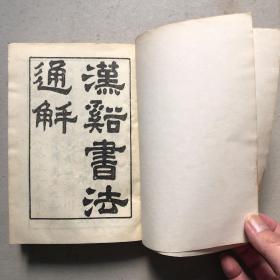 漢谿書法
通解